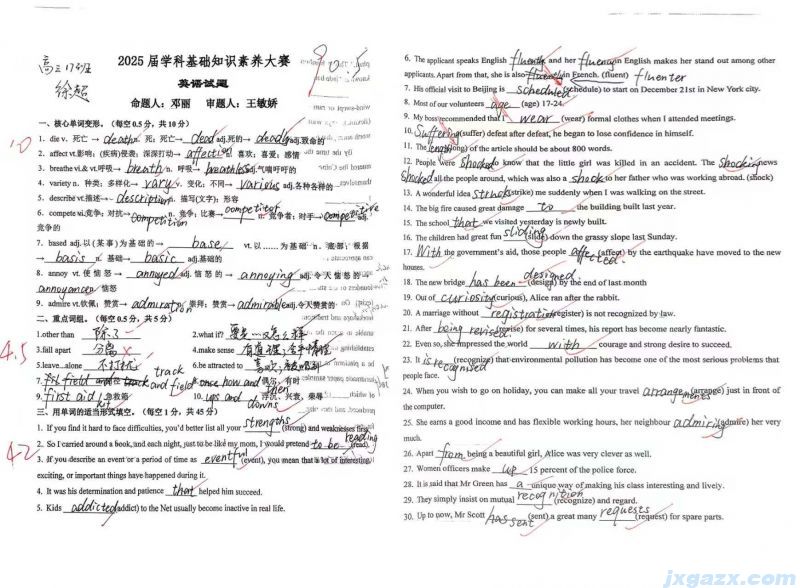 高三17班
徐超
2025 届学科基础知识素养大赛
90.5
英语试题
命题人：邓丽 审题人：王敏娇
一、核心单词变形。（每空0.5分，共10分）
10
1. die v. 死亡→ death n. 死；死亡→ dead adj.死的→ deadly adj.致命的
2. affect vt.影响；(疾病)侵袭；深深打动→ affection n. 喜欢；喜爱；感情
3. breathe vi.& vt.呼吸→ breath n. 呼吸→ breathless adj.气喘吁吁的
4. variety n. 种类；多样化→ vary v. 变化；不同→ various adj.各种各样的
5. describe vt.描述→ description n. 描写(文字)；形容
6. compete vi.竞争；对抗→ competition n. 竞争；比赛→ competitor n. 竞争者；对手→ competitive adj.
竞争的
7. based adj.以(某事)为基础的→ base vt. 以……为基础 n. 底部；根据
→ basis n. 基础→ basic adj.基础的
8. annoy vt. 使恼怒→ annoyed adj. 恼怒的→ annoying adj.令人恼怒的→
annoyance n. 恼怒
9. admire vt.钦佩；赞赏→ admiration n. 崇拜；赞赏→ admirable adj.令人赞赏的
二、重点词组。（每空0.5分，共5分）
4.5
1.other than 除了 2.what if? 要是…又怎么样
3.fall apart 分离 4.make sense 有道理；合乎情理
5.leave alone 不打扰 6.be attracted to 喜欢
7. track and field 田径 8. once now and then 偶尔，有时
9. first aid kit 急救箱 10. ups and downs 浮沉，兴衰，荣辱
三、用单词的适当形式填空。（每空1分，共45分）
42
1. If you find it hard to face difficulties, you'd better list all your strengths (strong) and weaknesses first.
2. So I carried around a book, and each night, just to be like my mom, I would pretend to be reading (read).
3. If you describe an event or a period of time as eventful (event), you mean that a lot of interesting,
exciting, or important things have happened during it.
4. It was his determination and patience that helped him succeed.
5. Kids addicted (addict) to the Net usually become inactive in real life.
6. The applicant speaks English fluently and her fluency in English makes her stand out among other
applicants. Apart from that, she is also fluent in French. (fluent) fluenter
7. His official visit to Beijing is scheduled (schedule) to start on December 21st in New York city.
8. Most of our volunteers age (age) 17-24.
9. My boss recommended that I wear (wear) formal clothes when I attended meetings.
10. Suffering (suffer) defeat after defeat, he began to lose confidence in himself.
11. The length (long) of the article should be about 800 words.
12. People were shocked to know that the little girl was killed in an accident. The shocking news
shocked all the people around, which was also a shock to her father who was working abroad. (shock)
13. A wonderful idea struck (strike) me suddenly when I was walking on the street.
14. The big fire caused great damage to the building built last year.
15. The school that we visited yesterday is newly built.
16. The children had great fun sliding (slide) down the grassy slope last Sunday.
17. With the government's aid, those people affected (affect) by the earthquake have moved to the new
houses.
18. The new bridge has been designed (design) by the end of last month
19. Out of curiosity (curious), Alice ran after the rabbit.
20. A marriage without registration (register) is not recognized by law.
21. After being revised (revise) for several times, his report has become nearly fantastic.
22. Even so, she impressed the world with courage and strong desire to succeed.
23. It is recognised (recognize) that environmental pollution has become one of the most serious problems that
people face.
24. When you wish to go on holiday, you can make all your travel arrangements (arrange) just in front of
the computer.
25. She earns a good income and has flexible working hours, her neighbour admiring (admire) her very
much.
26. Apart from being a beautiful girl, Alice was very clever as well.
27. Women officers make up 15 percent of the police force.
28. It is said that Mr Green has a unique way of making his class interesting and lively.
29. They simply insist on mutual recognition (recognize) and regard.
30. Up to now, Mr Scott has sent (sent) a great many requests (request) for spare parts.
jxgazx.com